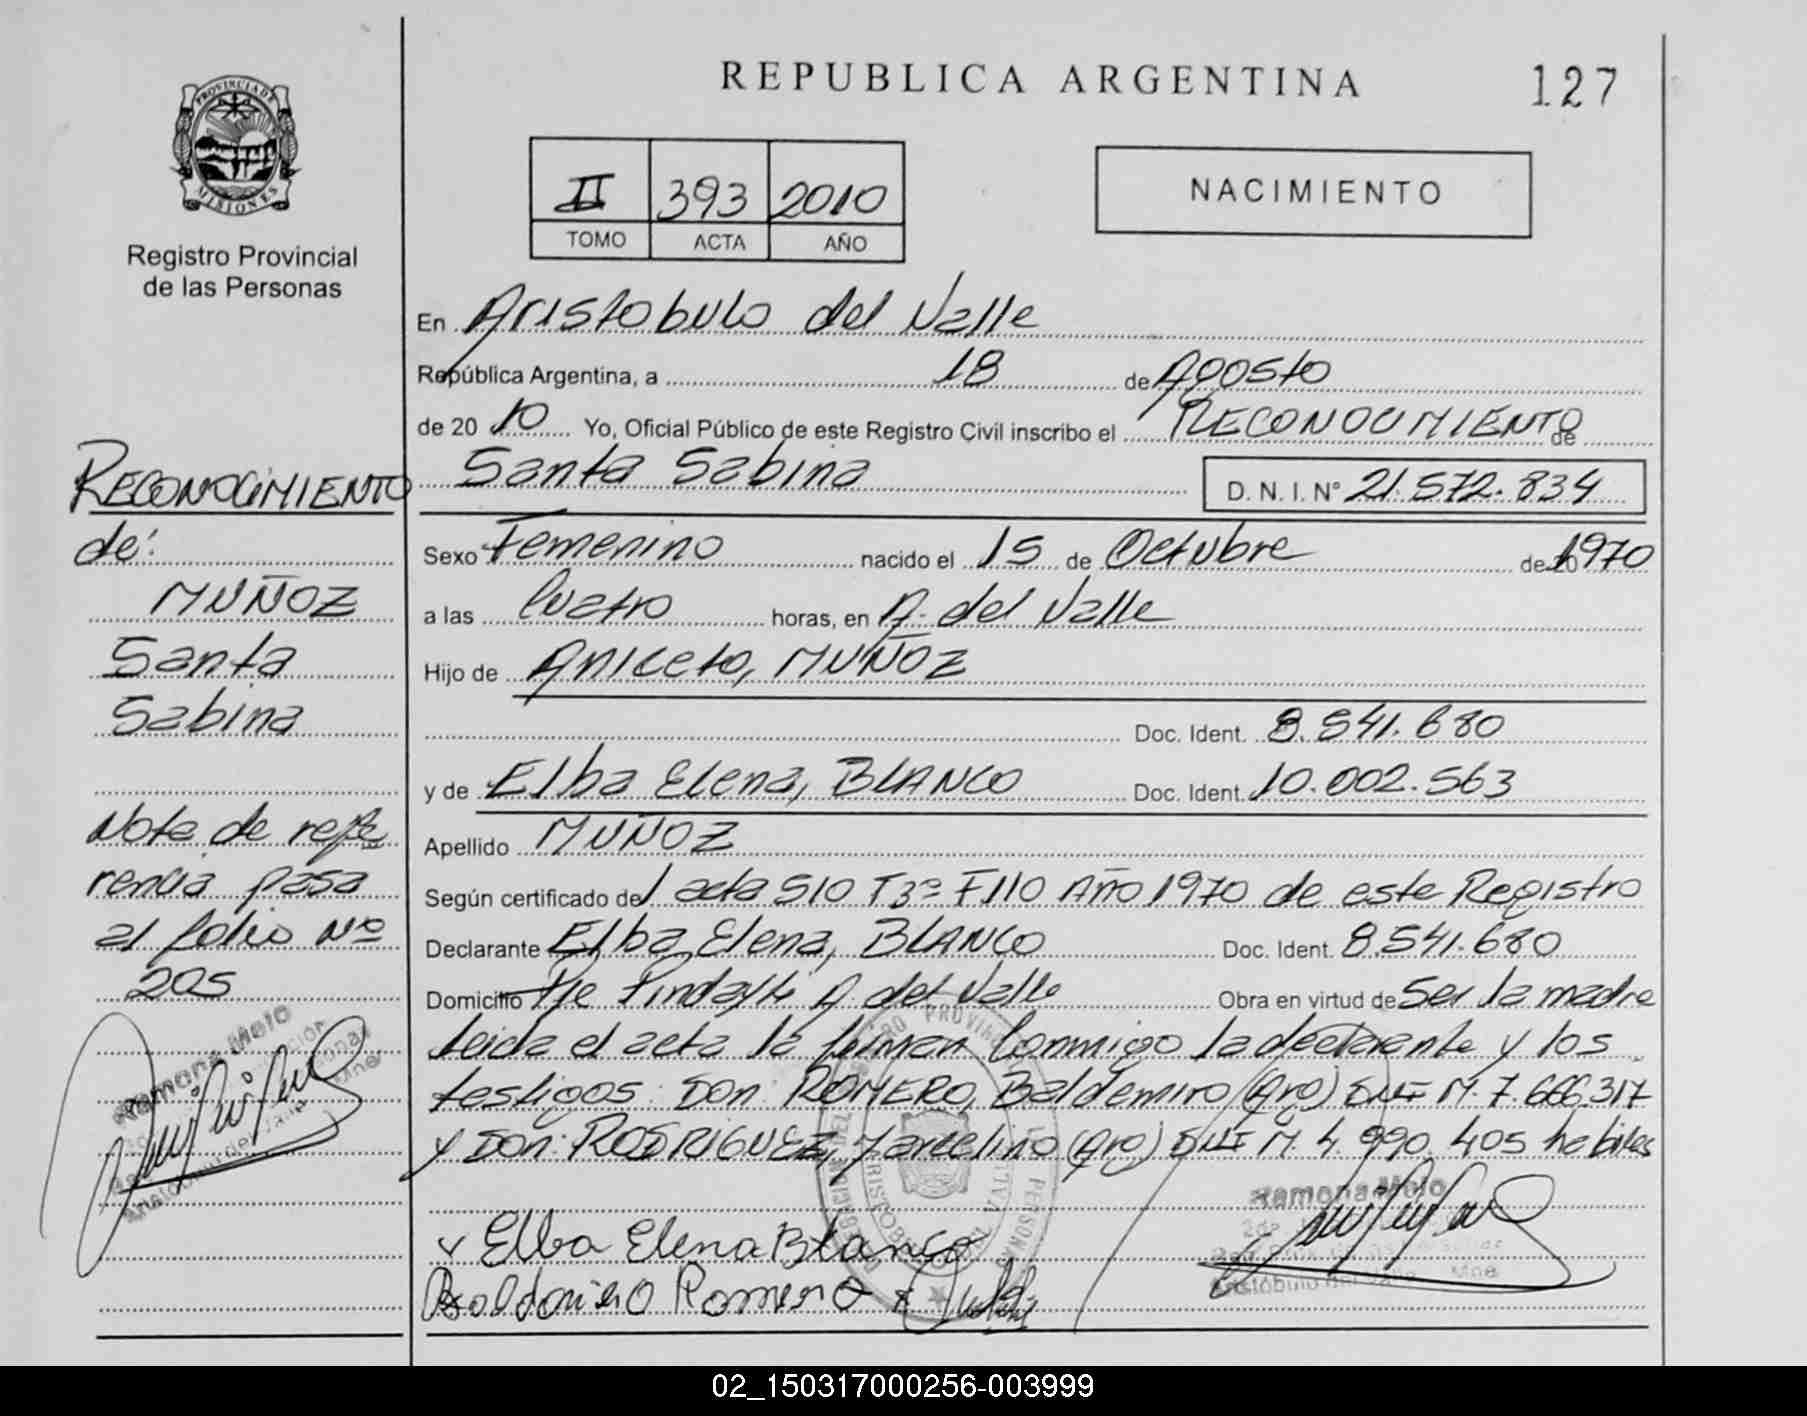 REPUBLICA ARGENTINA
127
PROVINCIA DE
MISIONES
Registro Provincial
de las Personas
II 393 2010
TOMO ACTA AÑO
NACIMIENTO
En Aristobulo del Valle
República Argentina, a 18 de Agosto
de 20 10 Yo, Oficial Público de este Registro Civil inscribo el RECONOCIMIENTO de
Santa Sabina D. N. I. Nº 21.572.834
Sexo Femenino nacido el 15 de Octubre de 1970
a las Cuatro horas, en A. del Valle
Hijo de Aniceto, MUÑOZ
Doc. Ident. 8.541.680
y de Elba Elena, BLANCO Doc. Ident. 10.002.563
Apellido MUÑOZ
Según certificado del acta 510 T3º F110 Año 1970 de este Registro
Declarante Elba Elena, BLANCO Doc. Ident. 8.541.680
Domicilio Pje Pindayti A. del Valle Obra en virtud de Ser la madre
Leida el acta la firman Conmigo la declarante y los
testigos: Don ROMERO, Baldemiro (Arg) DNI M. 7.666.317
y Don: RODRIGUEZ, Marcelino (Arg) DNI M. 4.990.405 habiles
RECONOCIMIENTO
de:
MUÑOZ
Santa
Sabina
Nota de refe
rencia pasa
al folio Nº
205
Ramona Melo
Elba Elena Blanco
Baldomiro Romero
Ramona Melo
Aristóbulo del Valle Mnes
02_150317000256-003999